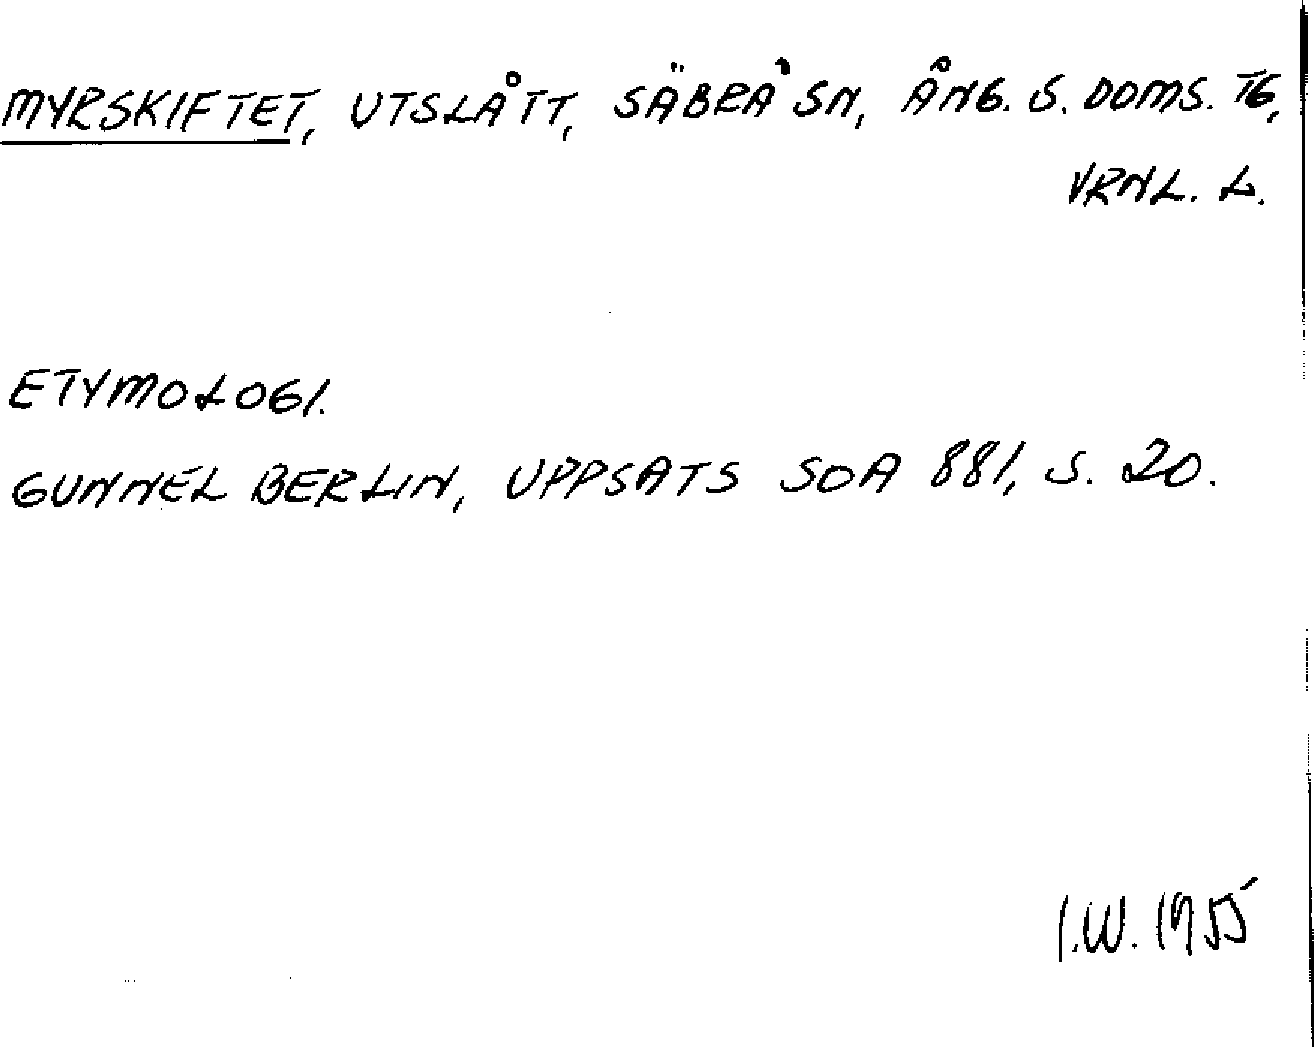 MYRSKIFTET, UTSLÅTT, SÄBRÅ SN, ÅNG. S. DOMS. TG,
VRNL. L.
ETYMOLOGI.
GUNNEL BERLIN, UPPSATS SOA 881, S. 20.
I.W. 1955